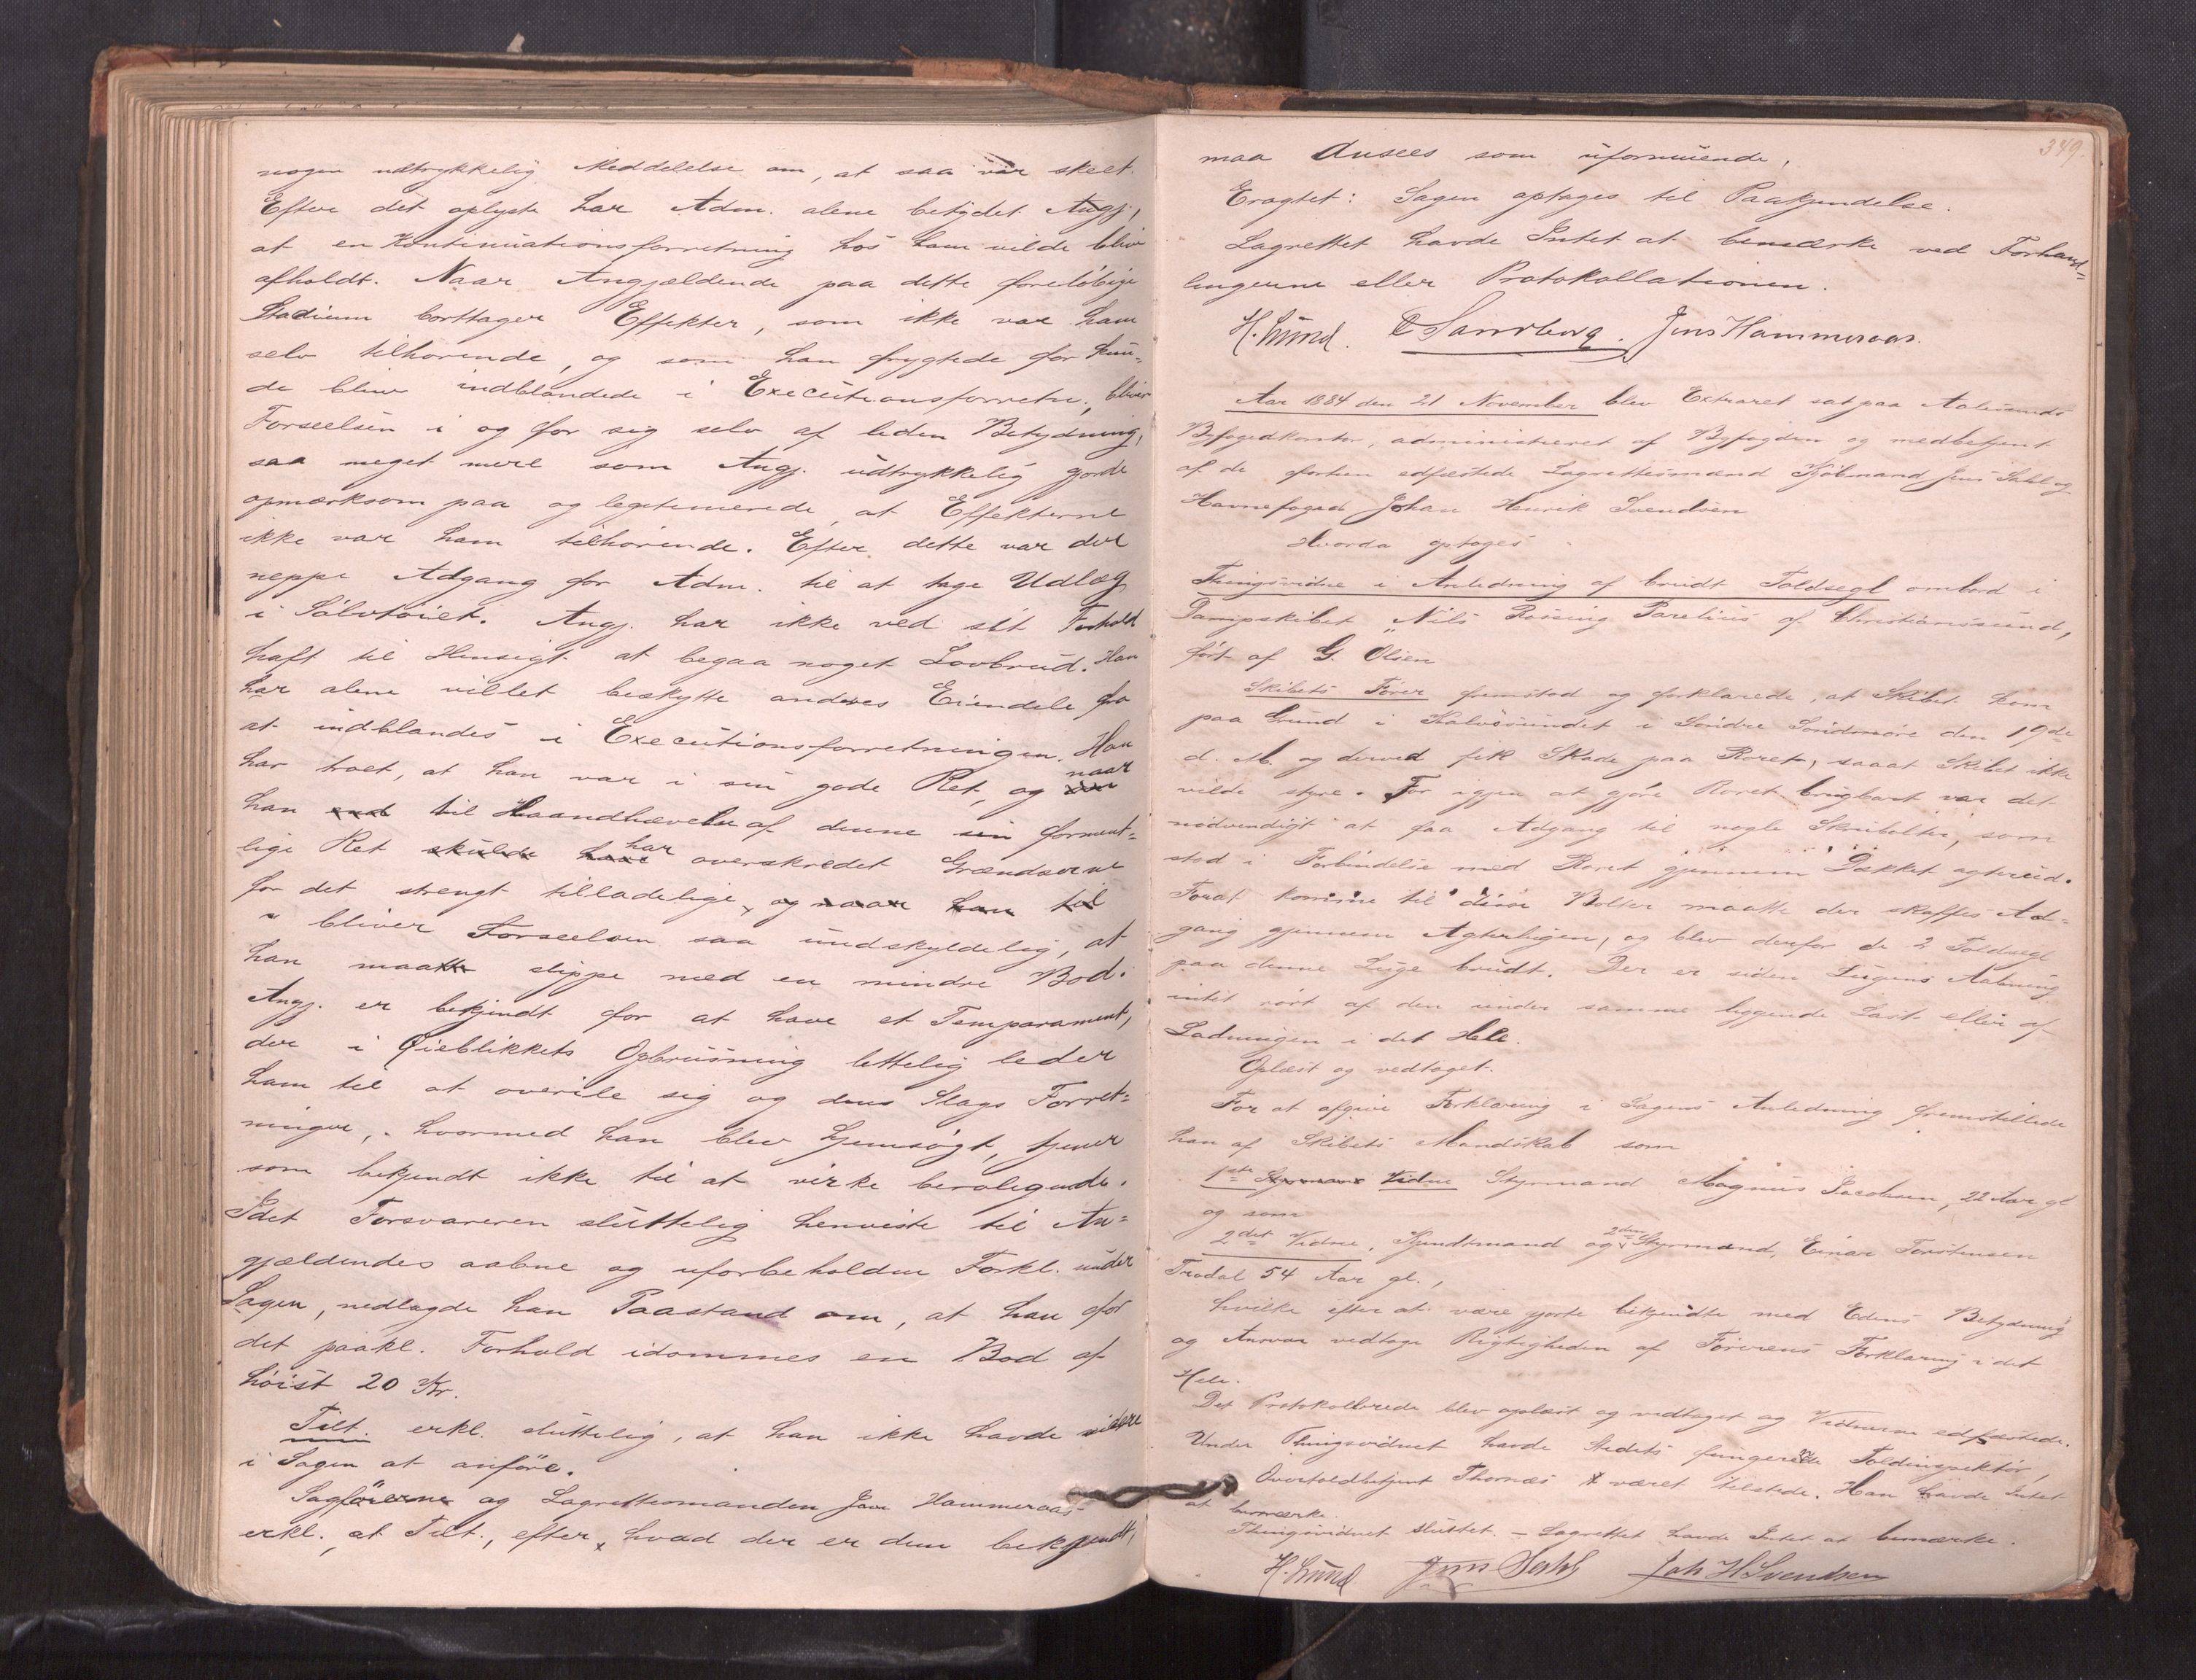 nogen udtrykkelig Meddelelse om, at saa var skeet.
Efter det oplyste har Adm. alene betydet Angj.,
at en Kontinuationsforretning hos ham vilde blive
afholdt. Naar Angjældende paa dette foreløbige
Stadium borttager Effekter, som ikke var ham
selv tilhørende, og som han frygtede for kun-
de blive indblandede i Executionsforretn., bliver
Forseelsen i og for sig selv af liden Betydning,
saa meget mere som Angj. udtrykkelig gjorde
opmærksom paa og legitimerede, at Effekterne
ikke var ham tilhørende. Efter dette var der
neppe Adgang for Adm. til at tage Udlæg
i Sølvtøiet. Angj. har ikke ved sit Forhold
haft til Hensigt at begaa noget Lovbrud. Han
har alene villet beskytte andres Eiendele fra
at indblandes i Executionsforretningen. Han
har troet, at han var i sin gode Ret, og naar
han til Haandhævelse af denne sin forment-
lige Ret skulde have har overskredet Grændserne
for det strengt tilladelige, og naar han til
bliver Forseelsen saa undskyldelig, at
han maatte slippe med en mindre Bod.
Angj. er bekjendt for at have et Temparament,
der i Øieblikkets Opbrusning lettelig leder
ham til at overile sig og den Slags Forret-
ninger, hvormed han blev hjemsøgt, tjener
som bekjendt ikke til at virke beroligende.
Idet Forsvareren sluttelig henviste til An-
gjældendes aabne og uforbeholdne Forkl. under
Sagen, nedlagde han Paastand om, at han for
det paakl. Forhold idømmes en Bod af
høist 20 Kr.
Tilt. erkl. sluttelig, at han ikke havde videre
i Sagen at anføre.
Sagførerne og Lagrettesmanden Jens Hammeraas
erkl., at Tilt., efter hvad der er dem bekjendt,
349.
maa Ansees som uformuende.
Eragtet: Sagen optages til Paakjendelse.
Lagrettet havde Intet at bemærke ved Forhand-
lingerne eller Protokollationen.
H. Lund. C Sandberg. Jens Hammeraas.
Aar 1884 den 21 November blev Extraret sat paa Aalesunds
Byfogedkontor, administreret af Byfogden og medbetjent
af de forhen edfæstede Lagrettesmænd Kjøbmand Jens Dahl og
Havnefoged Johan Henrik Svendsen
Hvorda optoges
Thingsvidne i Anledning af brudt Toldsegl ombord i
Dampskibet "Nils Rossing Parelius af Christianssund,
ført af G. Olsen
Skibets Fører fremstod og forklarede, at Skibet kom
paa Grund i Kalvøsundet i Søndre Søndmøre den 19de
d. M. og derved fik Skade paa Roret, saaat Skibet ikke
vilde styre. For igjen at gjøre Roret brugbart var det
nødvendigt at faa Adgang til nogle Skrubolter, som
stod i Forbindelse med Roret gjennem Dækket agterud.
Forat komme til disse Bolter maatte der skaffes Ad-
gang gjennem Agterlugen, og blev derfor de 2 Toldsegl
paa denne Luge brudt. Der er siden Lugens Aabning
intet rørt af den under samme liggende Last eller af
Ladningen i det Hele.
Oplæst og vedtaget.
For at afgive Forklaring i Sagens Anledning fremstillede
han af Skibets Mandskab som
1ste Styrmand Vidne Styrmand Magnus Jacobsen, 22 Aar gl
og som
2det Vidne, Kjendtmand og 2den Styrmand, Einar Torstensen
Trodal 54 Aar gl.,
hvilke efter at være gjorte bekjendte med Edens Betydning
og Ansvar vedtoge Rigtigheden af Førerens Forklaring i det
Hele.
Det Protokollerede blev oplæst og vedtaget og Vidnerne edfæstede.
Under Thingsvidnet havde Stedets fungerende Toldinspektør,
Overtoldbetjent Thornæs været tilstede. Han havde Intet
at bemærke.
Thingsvidnet sluttet. – Lagrettet havde Intet at bemærke.
H. Lund Jens Dahl Joh H Svendsen